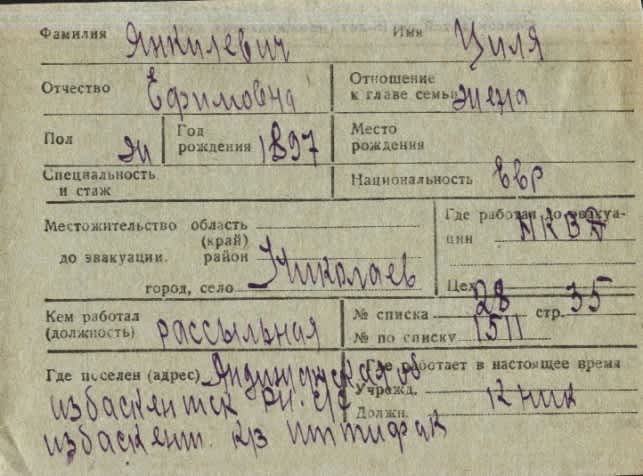 Фамилия Янкилевич Имя Циля
Отчество Ефимовна Отношение к главе семьи жена
Пол ж Год рождения 1897 Место рождения
Специальность и стаж Национальность евр
Местожительство область (край) до эвакуации. район город, село Николаев
Где работал до эвакуации НКВД
Цех
Кем работал (должность) рассыльная
№ списка 28 стр. 35
№ по списку 1511
Где поселен (адрес) Андижанская об
избаскентск рн. с/с
избаскент. кз иттифак
Где работает в настоящее время
Учрежд.
Должн.